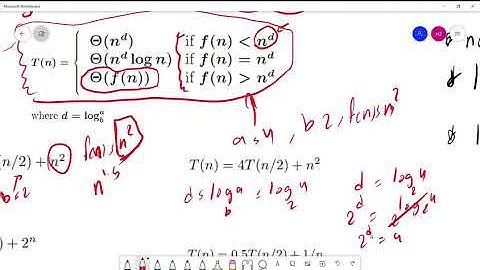 Microsoft Whiteboard
T(n) =
Θ(n^d) if f(n) < n^d
Θ(n^d log n) if f(n) = n^d
Θ(f(n)) if f(n) > n^d
where d = log_b^a
a=4, b 2, f(n)=n^2
f(n)= n^2
(n/2) + n^2
b=2
T(n) = 4T(n/2) + n^2
d = log_b a = log_2 4
d = log_2 4
2^d = 2^log_2 4
2^d = 4
) + 2^n
T(n) = 0.5T(n/2) + 1/n